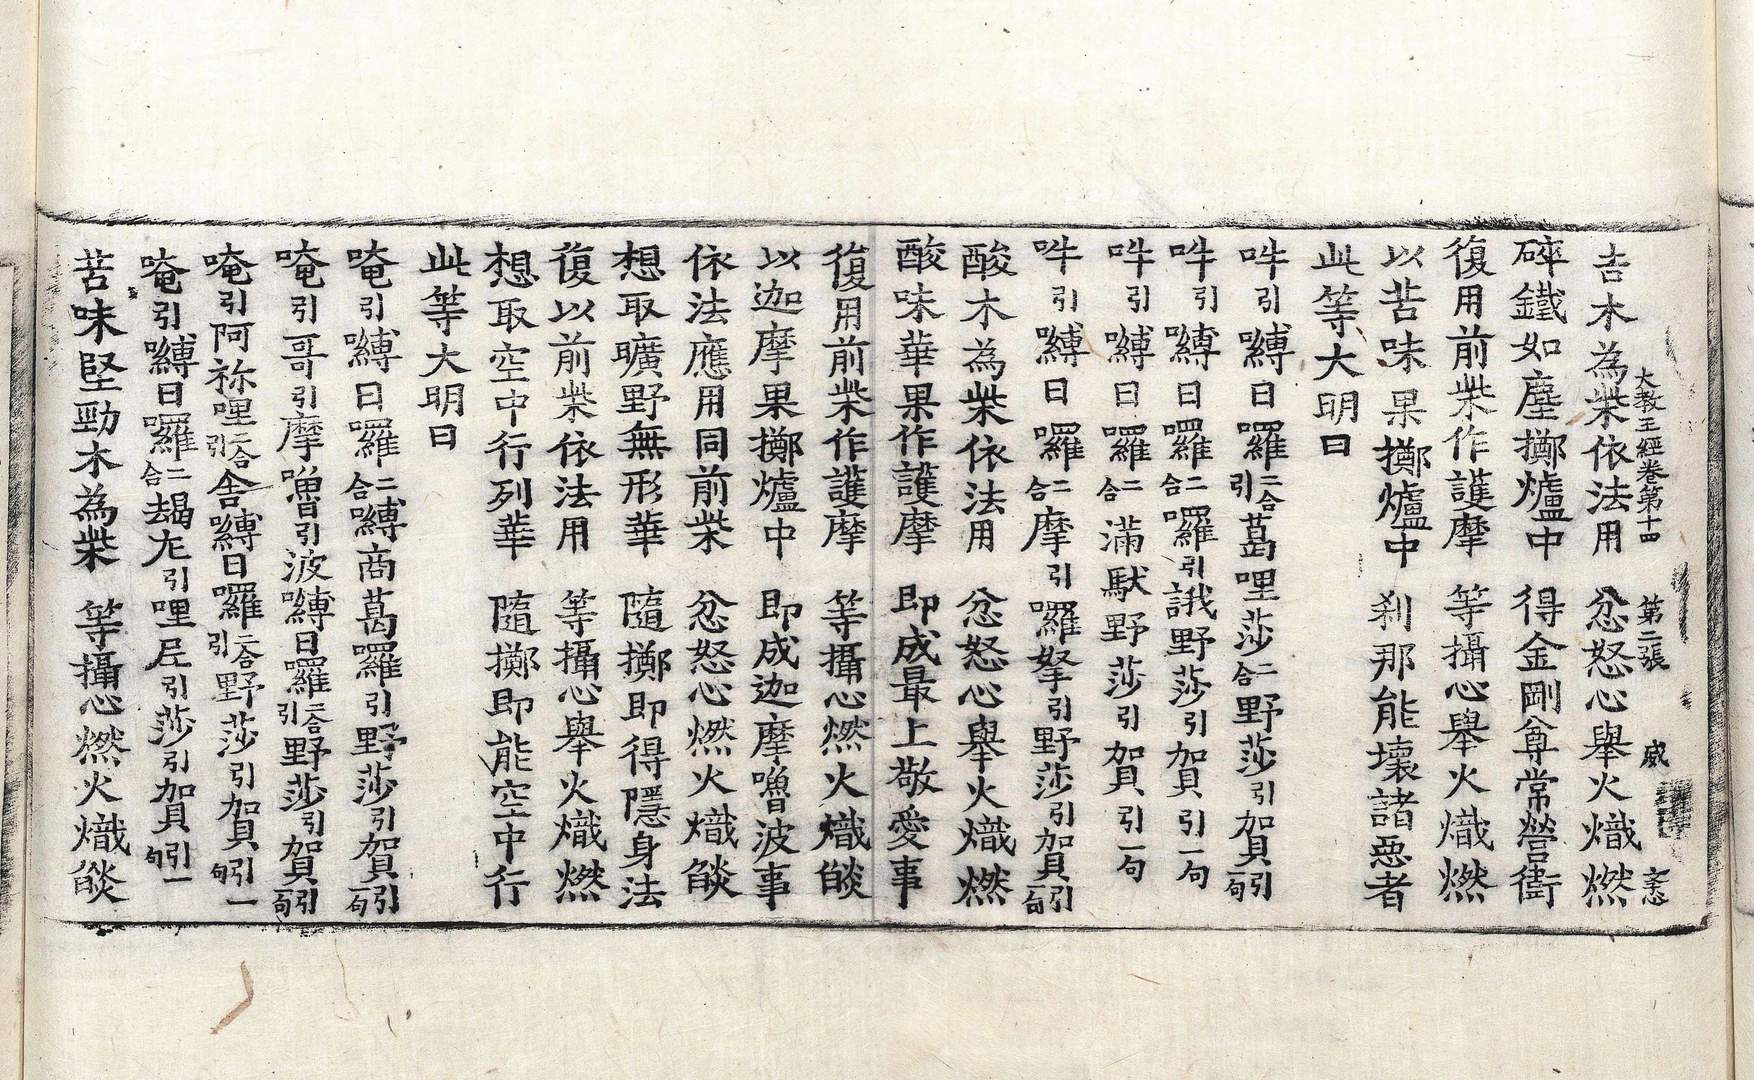 大教王經卷第十四 第二張 威
吉木為柴依法用 忿怒心舉火熾燃
碎鐵如塵擲爐中 得金剛尊常營衛
復用前柴作護摩 等攝心舉火熾燃
以苦味果擲爐中 剎那能壞諸惡者
此等大明曰
吽引嚩日囉二合引葛哩莎二合野莎引賀引一句
吽引嚩日囉二合囉引誐野莎引賀引一句
吽引嚩日囉二合滿馱野莎引賀引一句
吽引嚩日囉二合摩引囉拏引野莎引賀引一句
酸木為柴依法用 忿怒心舉火熾燃
酸味華果作護摩 即成最上敬愛事
復用前柴作護摩 等攝心燃火熾燄
以迦摩果擲爐中 即成迦摩嚕波事
依法應用同前柴 忿怒心燃火熾燄
想取曠野無形華 隨擲即得隱身法
復以前柴依法用 等攝心舉火熾燃
想取空中行列華 隨擲即能空中行
此等大明曰
唵引嚩日囉二合嚩商葛囉引野莎引賀引一句
唵引哥引摩嚕引波嚩日囉二合引野莎引賀引一句
唵引阿祢哩二合引舍嚩日囉二合引野莎引賀引一句
唵引嚩日囉二合朅尤引哩尼引莎引賀引一句
苦味堅勁木為柴 等攝心燃火熾燄